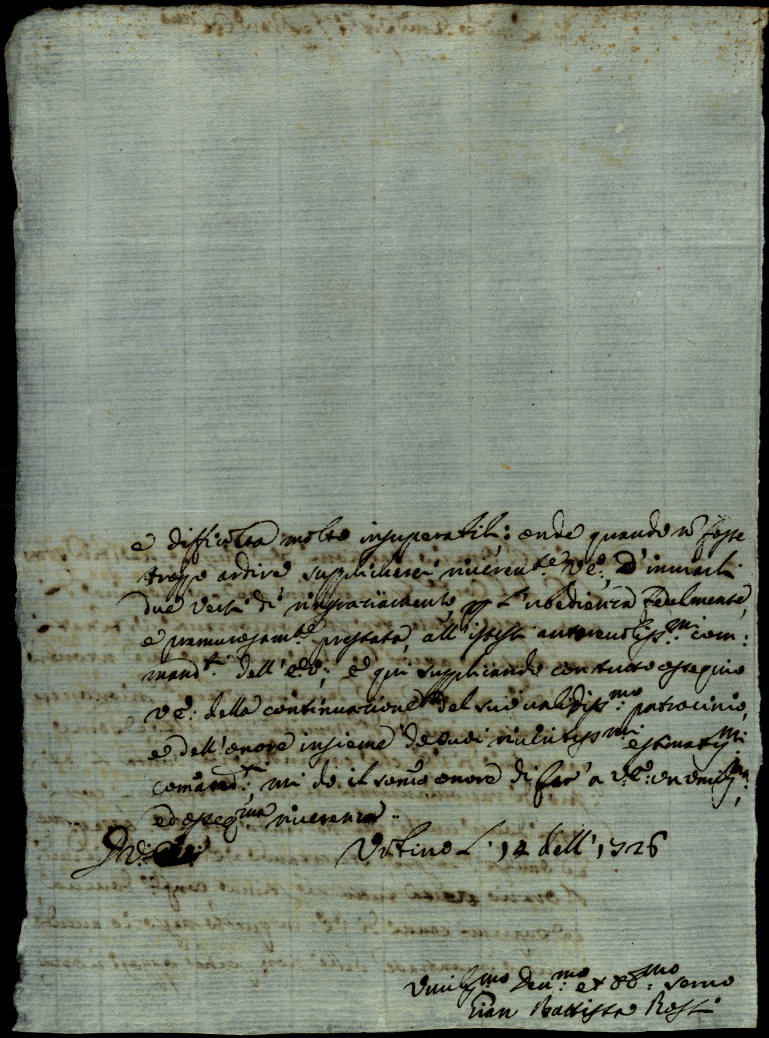 e difficoltà molto insuperabili: onde quando nō fosse
troppo ardire supplicherei riverent.e V.E., d'inviarli
due versi di ringraziamento, p l'ubedienza fedelmente,
e premurosam.te prestata, all'istessi autorevoliss.mi com:
mand.ti dell'E.V.; e qui supplicando con tutto ossequio
V.E. della continuazione del suo validiss.mo patrocinio,
e dell'onore insieme de suoi riveritiss.mi estimatiss.mi
comand.ti mi do il somo onore di far' a V.E. un umiliss.ma,
ed osseq.ma riverenza..
Di V.E.
Urbino L' 14 dell' 1726
Umiliss.mo Dev.mo et Ob.mo servo
Gian Battista Rossi